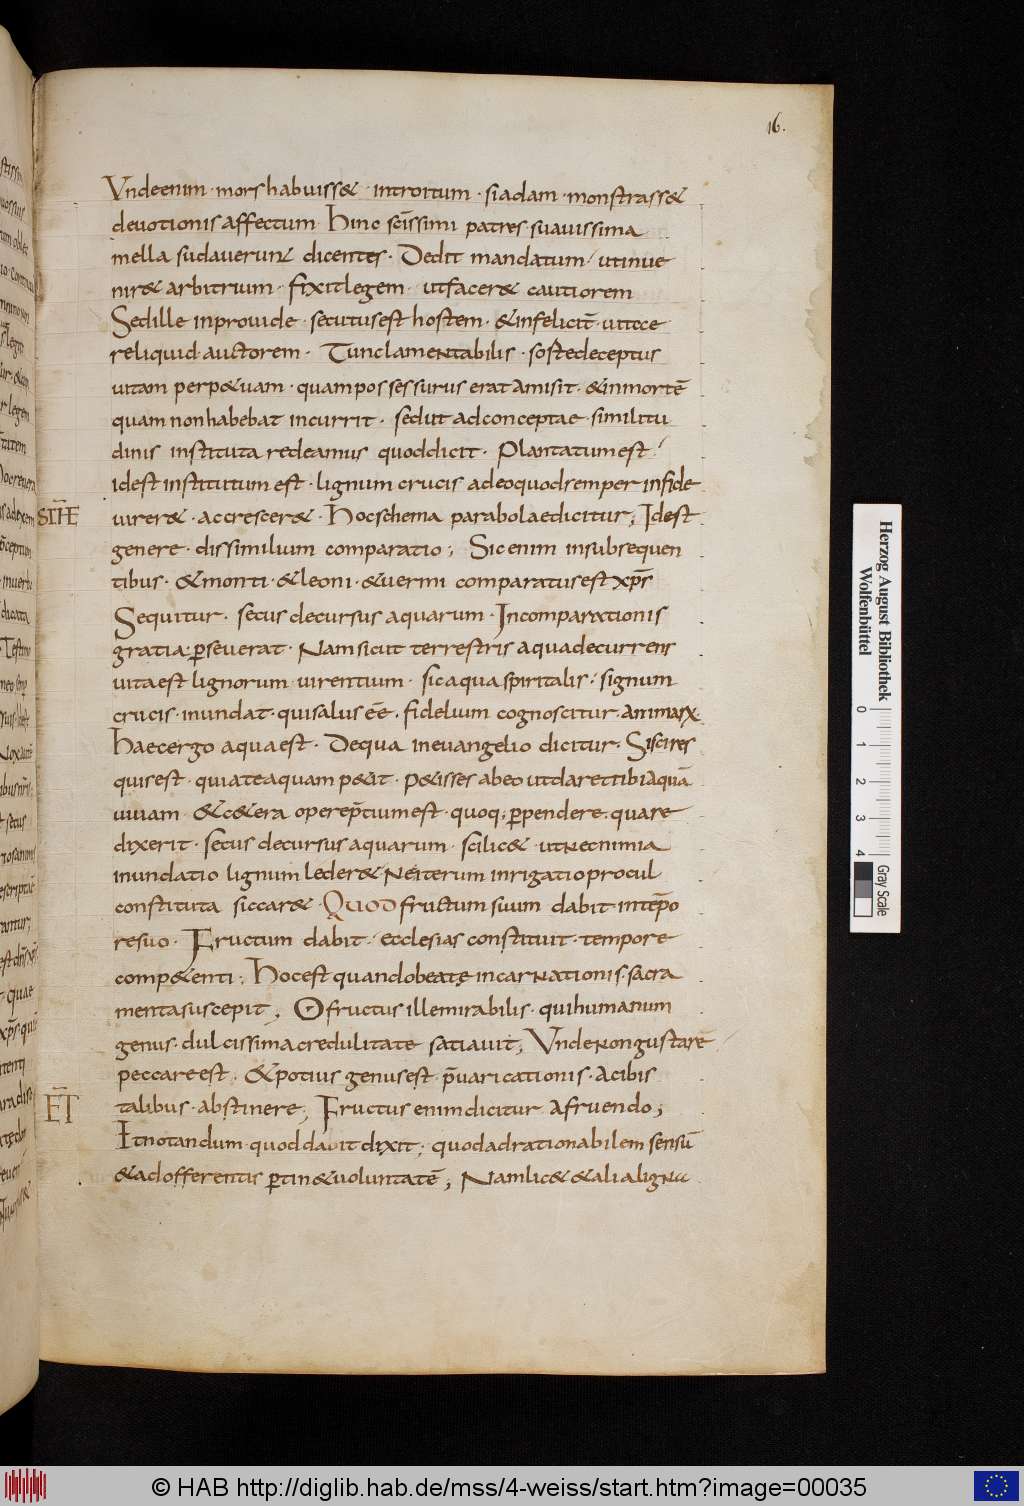 16.
Unde enim · mors habuiss& · introitum · si adam · monstrass&
deuotionis affectum · Hinc sc̄issimi patres suauissima
mella sudauerunt dicentes · Dedit mandatum · ut inue
nir& arbitrium · fixit legem · ut facer& cautiorem
Sed ille inprouide · secutus est hostem · & infelicit̄ ·
reliquid auctorem · Tunc lamentabilis · hoste deceptus
uitam perp&uam · quam possessurus erat amisit · & in mortē
quam non habebat incurrit · sed ut ad conceptae · similitu
dinis instituta redeamus quod dicit · Plantatum est
id est institutum est · lignum crucis adeo quod semper in fide
uirer& · accrescer& · Hoc schema parabolae dicitur ; Id est
SCHE
genere · dissimilium comparatio ; Sic enim in subsequen
tibus · & monti · & leoni · & uermi comparatus est xp̄s
Sequitur · secus decursus aquarum · In comparationis
gratia ꝑseuerat · Nam sicut terrestris aqua decurrens
uita est lignorum uirentium · sic aqua spiritalis · signum
crucis · inundat · qui salus ēē · fidelium cognoscitur animarx
Haec ergo aqua est · De qua in euangelio dicitur · Si scires
quis est · qui a te aquam p&it · p&isses ab eo ut daret tibi aquā
uiuam · & c&era opereprĕtium est · quoq; ꝑpendere · quare
dixerit · secus decursus aquarum · scilic& · ut nec nimia
inundatio lignum leder& Ne iterum inrigatio procul
constituta siccar& · Quod fructum suum dabit in tēpo
re suo · Fructum dabit · ecclesias constituit · tempore
comp&enti ; Hoc est quando beatę incarnationis sacra
menta suscepit ; O fructus ille mirabilis · qui humanum
genus · dulcissima credulitate satiauit ; Unde non gustare
peccare est · & potius genus est p̄uaricationis · a cibis
talibus · abstinere ; Fructus enim dicitur a fruendo ;
ET
Et notandum quod dabit dixit ; quod ad rationabilem sensū
& ad offerentis ꝑtin& uoluntatē ; Nam lic& & alia
Herzog August Bibliothek
Wolfenbüttel
0 1 2 3 4
Gray Scale
© HAB http://diglib.hab.de/mss/4-weiss/start.htm?image=00035